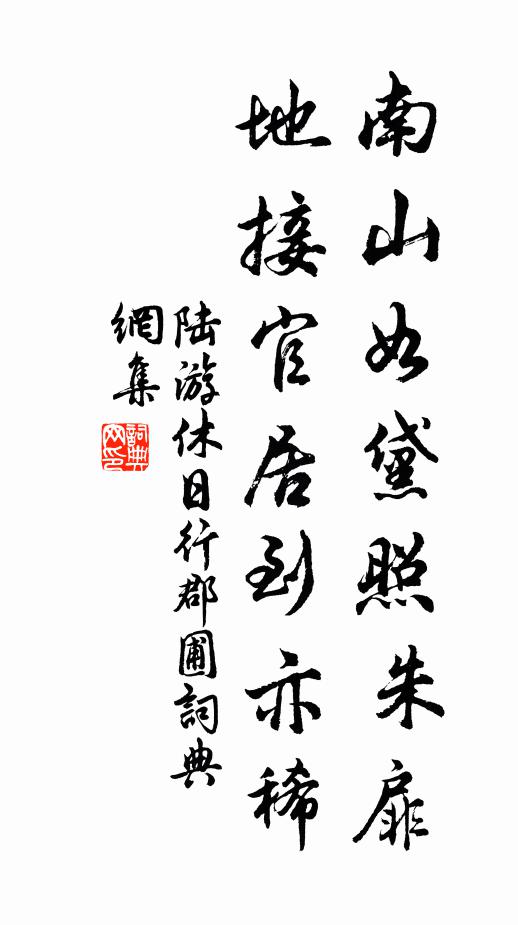 南山如黛照朱扉
地接官居到亦稀
陆游休日行郡圃詞典
網集
詞典網印